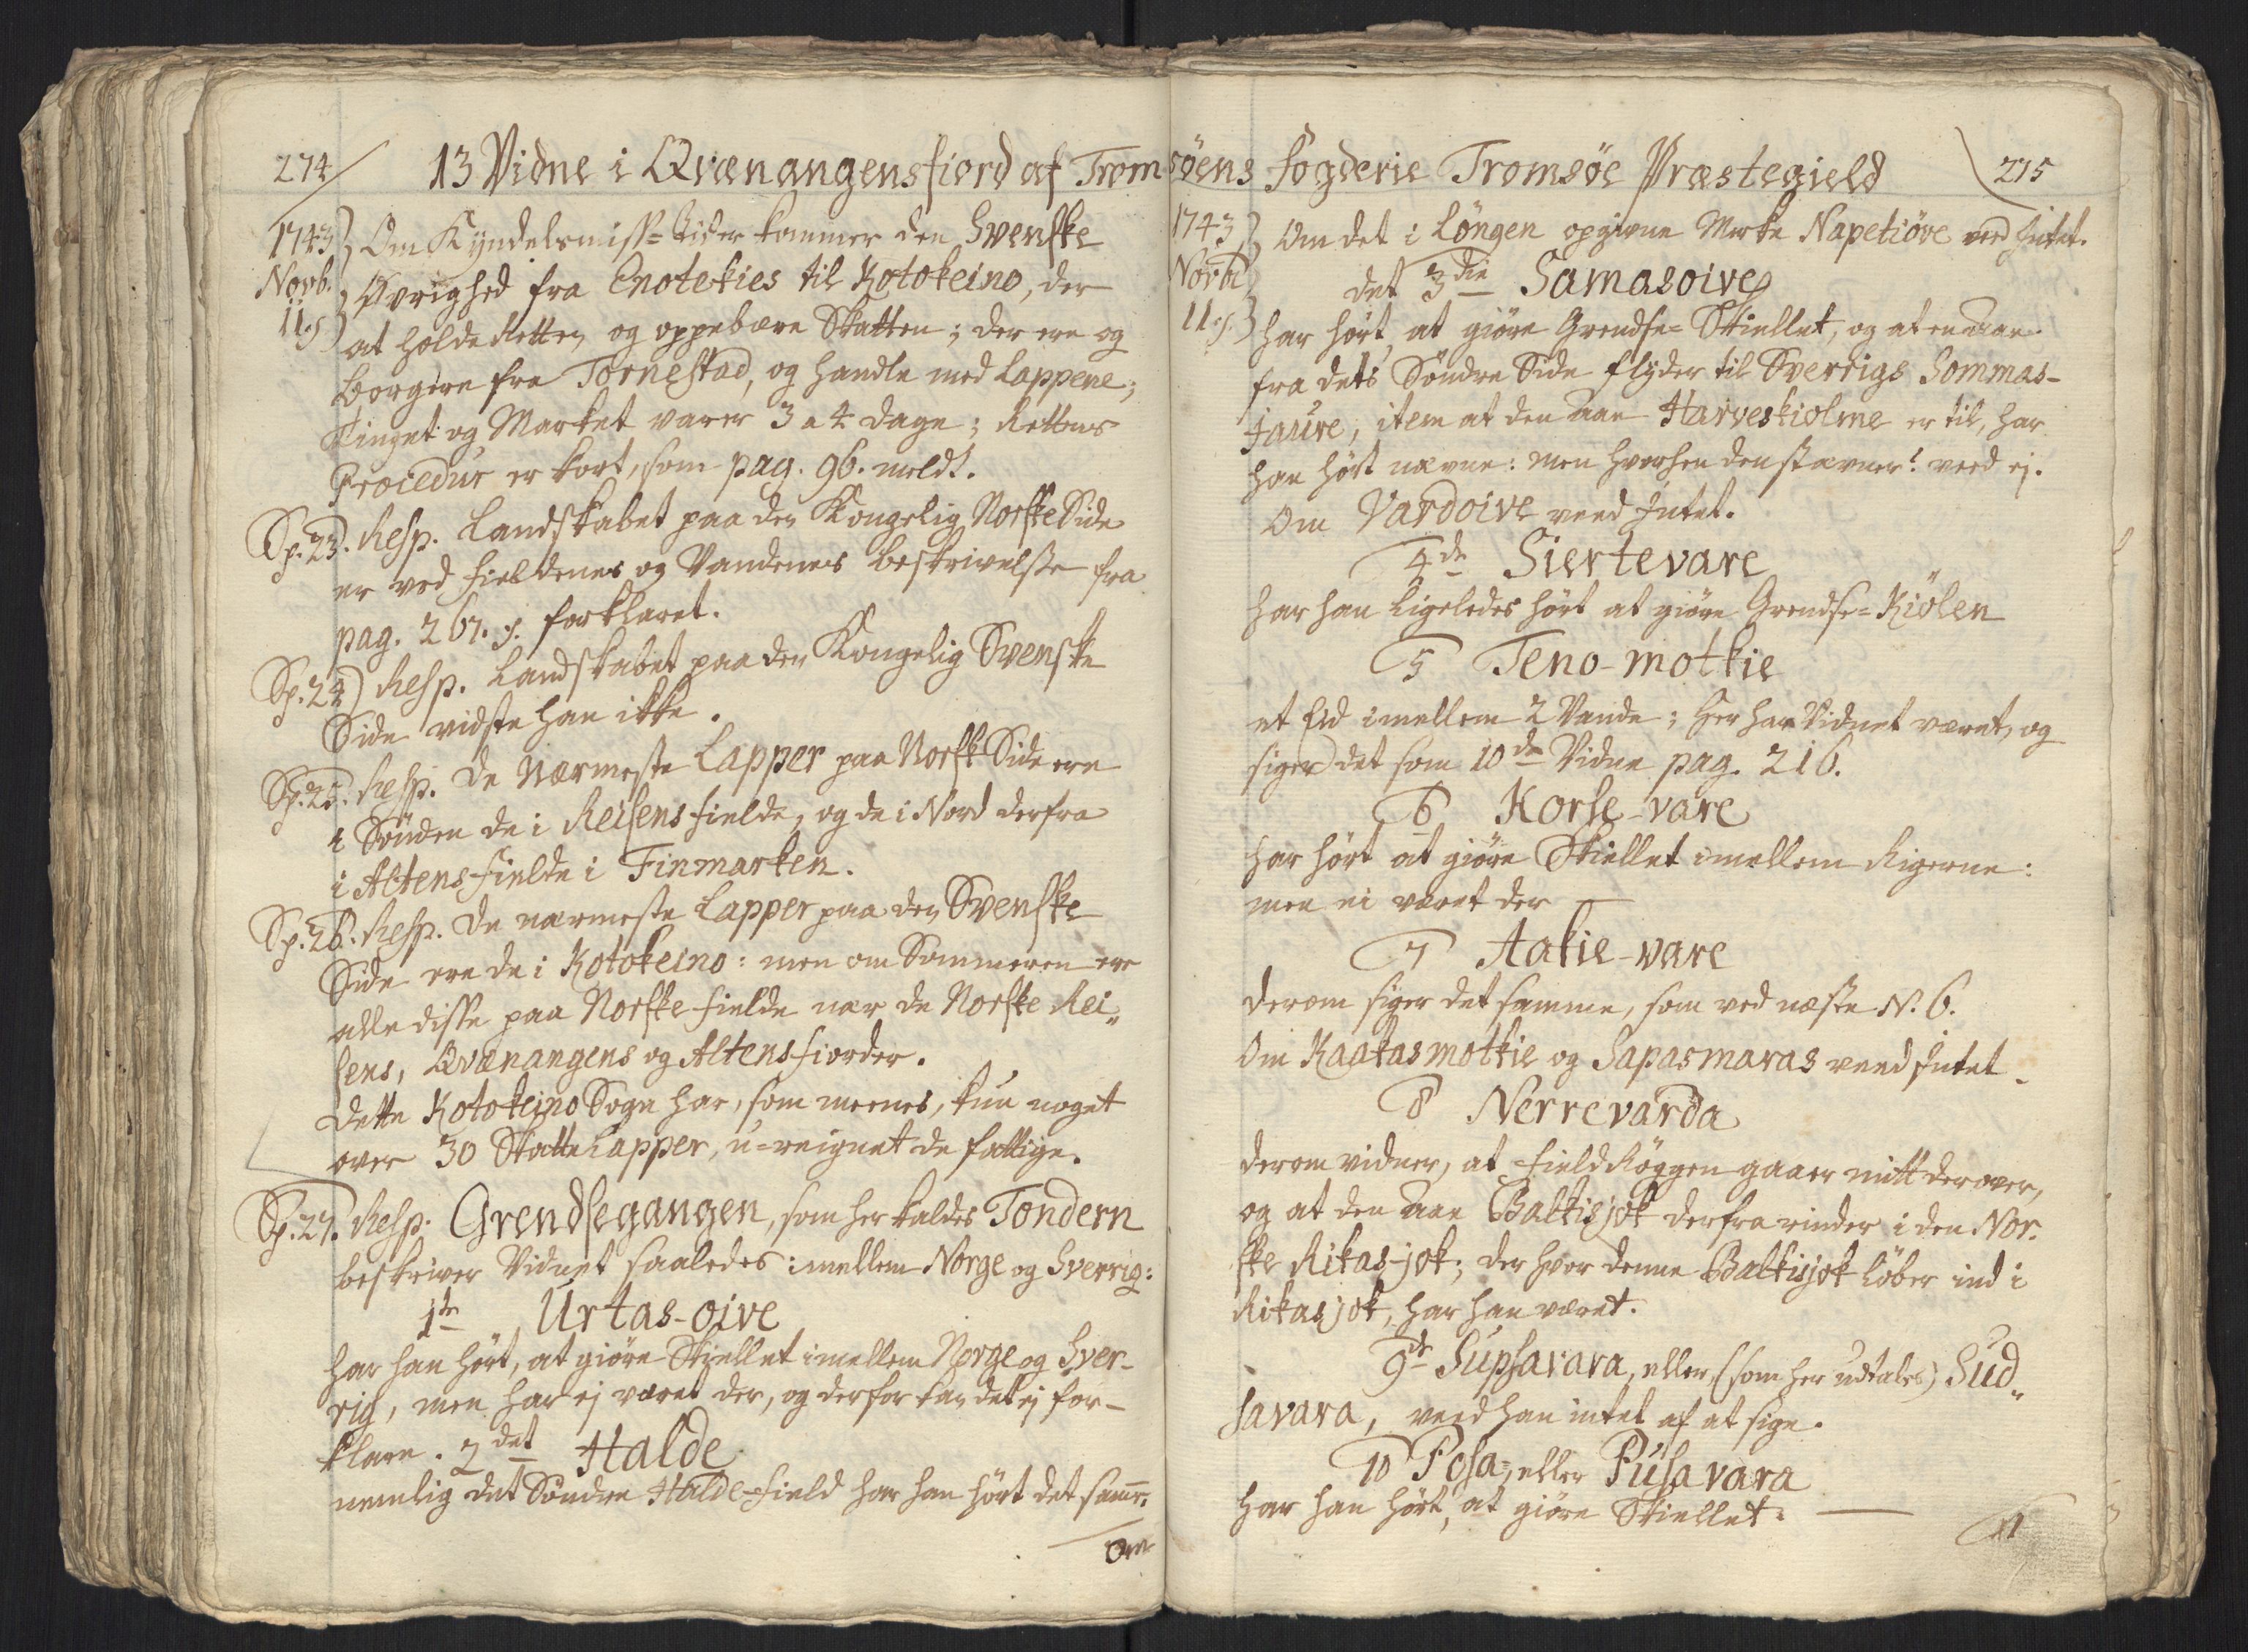 274
13 Vidne i Qvænangensfiord af Trom
1743 Om Kyndelsmiss-tider kommer den Svenske
Novb. Øvrighed fra Enotekies til Kotokeino, der
11. at holde Retten og oppebære Skatten; der ere og
borgere fra Tornestad, og handle med Lappene;
Tinget og Market varer 3 a 4 dage; Rettens
Procedur er kort, som pag. 96. meldt.
Sp. 23. Resp. Landskabet paa den Kongelig Norske Side
er ved Fieldenes og Vandenes beskrivelse fra
pag. 267. forklaret.
Sp. 24) Resp. Landskabet paa den Kongelig Svenske
Side vidste han ikke.
Sp. 25. Resp. De Nærmeste Lapper paa Norsk Side ere
i Sønden de i Reisens fielde, og de i Nord derfra
i Altens fielde i Finmarken.
Sp. 26. Resp. De nærmeste Lapper paa den Svenske
Side ere de i Kotokeino: men om Sommeren ere
alle disse paa Norske fielde nær de Norske Rei„
sens, Qvænangens og Altens fiorder.
Dette Kotokeino Sogn har, som meenes, kun noget
over 30 Skatte Lapper, u-reignet de fattige.
Sp. 27. Resp. Grendsegangen, som her kaldes Tondern
beskriver Vidnet saaledes imellem Norge og Sverrig:
1te Urtas-oive
har han hört, at giöre Skiellet imellem Norge og Sver-
rig, men har ej været der, og derfor kan det ej for-
klare. 2det Halde
nemlig det Söndre Halde-field har han hört det samme.
Om
söens Fogderie Tromsöe Præstegield
275
1743 Om det i Löngen opgivne Merke Napetiöve veed Intet.
Novbr det 3die Samasoive
11. har hört, at giöre Grendse-Skiellet, og at en aae
fra dets Söndre Side flyder til Sverrigs Sommas-
jaure, item at den aae Harveskiolme er til, har
han hört nævne: men hvorhen den stævner? veed ej.
Om Vardoive veed Intet.
4de Siertevare
har han ligeledes hört at giöre Grendse-Kiölen
5 Teno-motkie
et Eid imellem 2 Vande; her har Vidnet været, og
siger det som 10de Vidne pag. 216.
6 Korse-vare
har hört at giöre Skiellet imellem Rigerne:
men ei været der
7 Aakie-vare
derom siger det samme, som ved næste N. 6.
Om Kaakasmotkie og Sapasmaras veed Intet
8 Nerrevarda
derom vidner, at Field Röggen gaaer mitt derover,
og at den aae Baltisjok derfra rinder i den Nor-
ske Rikas-jok; der hvor denne Baltisjok löber ind i
Rikasjok, har han været.
9de Supsavara, eller (som her udtales) Sud„
savara, veed han intet af at sige.
10 Posa-, eller Pusavara
har han hört, at giöre Skiellet.
11